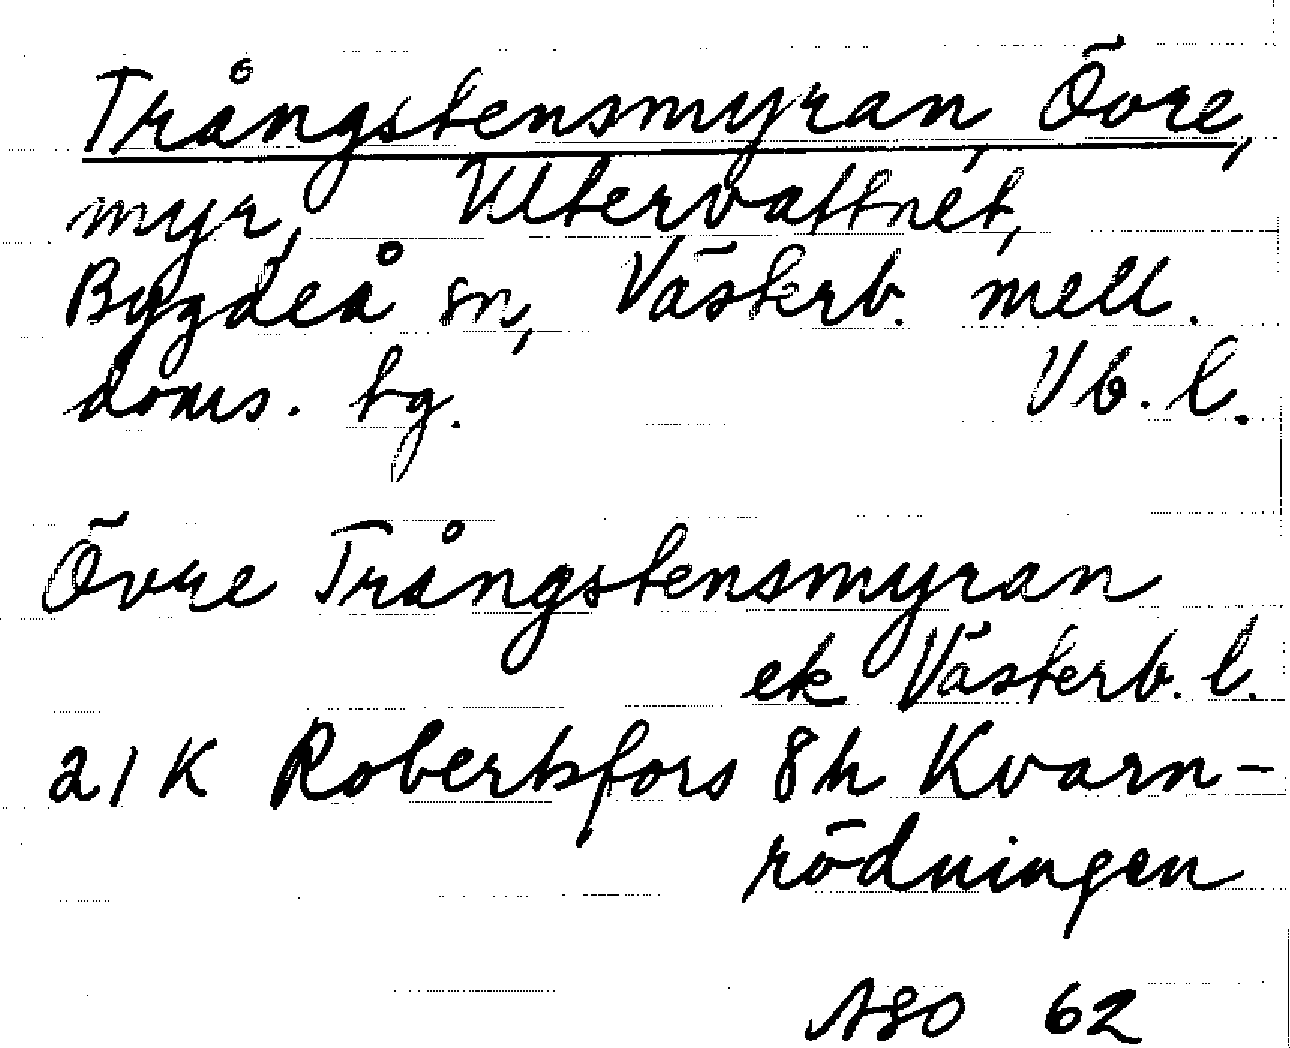 Trångstensmyran, Övre,
myr, Ultervattnet,
Bygdeå sn, Västerb. mell.
doms. tg. Vb. l.
Övre Trångstensmyran
ek Västerb. l.
21 K Robertsfors 8h Kvarn-
rödningen
ASO 62